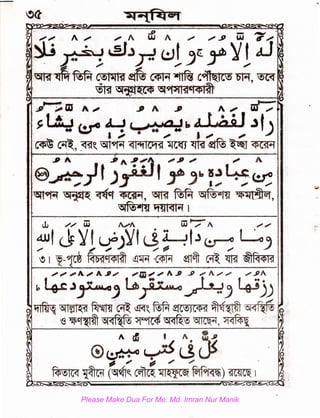 ৩৫ মনযিল
لَهٗۤ اِلَّا هُوَ ۚ وَاِنْ يُّرِدْكَ بِخَيْرٍ فَلَا
আর যদি তিনি তোমার প্রতি কোন শান্তি পৌঁছাতে চান, তবে
তাঁর অনুগ্রহকে অপসারণকারী
رَآدَّ لِفَضْلِهٖ ؕ يُصِيْبُ بِهٖ مَنْ يَّشَآءُ
কেউ নেই, বরং আপন বান্দাদের মধ্যে যার প্রতি ইচ্ছা করেন
مِنْ عِبَادِهٖ ؕ وَهُوَ الْغَفُوْرُ الرَّحِيْمُ ﴿۱۰۷﴾
আপন অনুগ্রহ বর্ষণ করেন, আর তিনি অতিশয় ক্ষমাশীল,
অতিশয় দয়াবান।
وَمَا مِنْ دَآبَّةٍ فِى الْاَرْضِ اِلَّا عَلَى اللّٰهِ
৩। ভূ-পৃষ্ঠে বিচরণকারী এমন কোন প্রাণী নেই যার জীবিকার
رِزْقُهَا وَيَعْلَمُ مُسْتَقَرَّهَا وَمُسْتَوْدَعَهَا ؕ
দায়িত্ব আল্লাহর যিম্মায় নেই এবং তিনি প্রত্যেকের দীর্ঘস্থায়ী অবস্থিতি
ও ক্ষণস্থায়ী অবস্থিতি সম্পর্কে অবহিত আছেন, সবকিছু
كُلٌّ فِىْ كِتٰبٍ مُّبِيْنٍ
কিতাবে মুবীনে (অর্থাৎ লৌহে মাহফুজে লিপিবদ্ধ) রয়েছে।
Please Make Dua For Me: Md. Imran Nur Manik